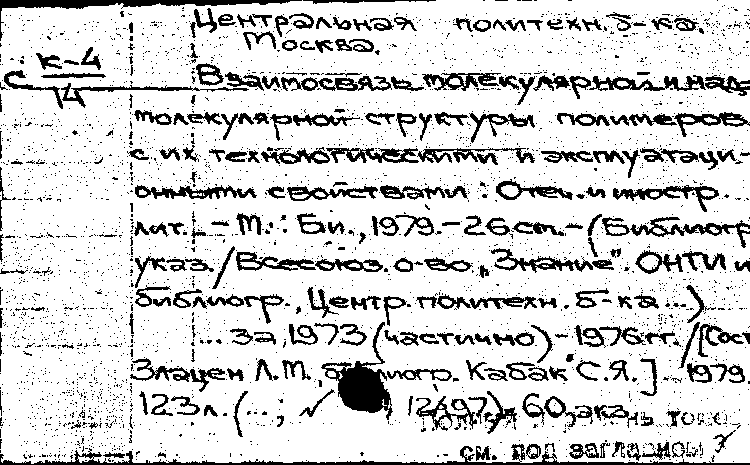 Центральная политехн. б-ка.
Москва.
С К-4
14
Взаимосвязь молекулярной и над-
молекулярной структуры полимеров
с их технологическими и эксплуатаци-
онными свойствами : Отеч. и иностр.
лит. - М. : Б.и., 1979. - 26 см. - (Библиогр
указ. / Всесоюз. о-во "Знание". ОНТИ и
библиогр., Центр. политехн. б-ка ...)
... за 1973 (частично) - 1976 гг. / [Сост
Злацен Л.М., библиогр. Кабак С.Я.] 1979.
123 л. (... ; 12697). 60 экз.
см. под заглавной